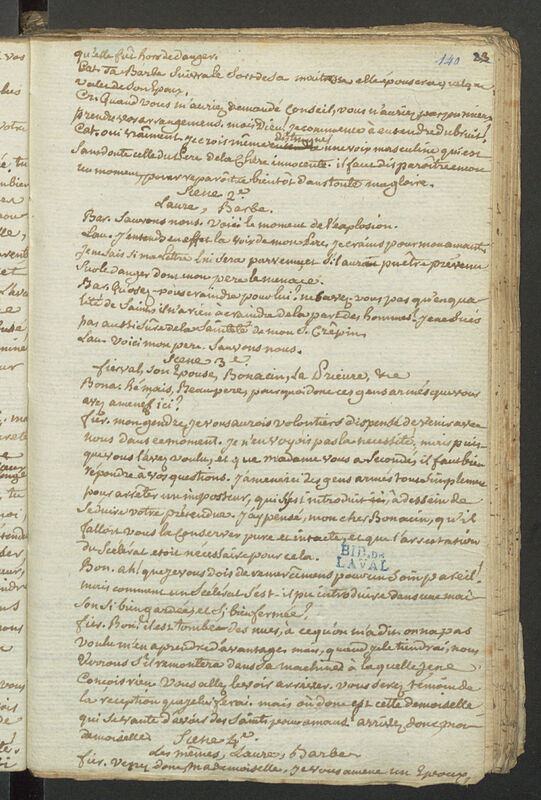 140 23
qu'elle fut hors de danger.
Cat. Ta Barbe suivra le sort de sa maitresse elle epousera quelque
valet de son Epoux.
Cri. Quand vous m'auriez demandé conseil, vous n'auriez pas pu mieux
prendre vos arrangemens. mais Dieu! je commence à entendre du bruit!
Cat. oui vraiment. Je crois même distinguer une voix masculine qui est
sans doute celle du Pere de la chere innocente. il faut disparoître en ce
un moment, pour reparoître bientôt dans toute ma gloire.
Scene 2e
Laure, Barbe.
Bar. Sauvons nous. Voici le moment de l'explosion.
Lau. J'entends en effet la voix de mon Pere, je crains pour mon amant.
Je ne sais si ma lettre lui sera parvenue, et s'il aura pu être prevenu
sur le danger dont mon pere le menace.
Bar. Qu'osez-vous craindre pour lui? ne savez vous pas qu'en qua
lité de saint il n'a rien a craindre de la part des hommes. Je ne suis
pas aussi sûre de la sainteté de mon St. Crêpin.
Lau. Voici mon pere. Sauvons nous.
Scene 3e
fierval, son Epouse, Bonacin, la Prieure, &c
Bona. hé mais, Beau pere, pourquoi donc ces gens armés que vous
avez amenés ici?
fier. mon gendre, je vous aurois volontiers dispensé de venir avec
nous dans ce moment. Je n'en voyois pas la necessité. mais puis
que vous l'avez voulu, et que madame vous a secondé, il faut bien
repondre à vos questions. J'amene ici des gens armés tout simplement
pour arrêter un imposteur, qui s'est introduit ici, à dessein de
seduire votre prétendue. J'ay pensé, mon cher Bonacin, qu'il
falloit vous la conserver pure et intacte, et que l'arrestation
du scelerat etoit necessaire pour cela.
BIB. DE
LAVAL
Bon. ah! que je vous dois de remercimens pour un soin pareil!
mais comment un scelerat s'est-il pu introduire dans une mai
son si bien gardée et si bien fermée?
fier. Bon! il est tombé des nues, à ce qu'on m'a dit. on n'a pas
voulu m'en aprendre davantage. mais, quand je le tiendrai, nous
verrons s'il remontera dans sa machine, à laquelle je ne
conçois rien. Vous allez le voir arrêter. Vous serez témoin de
la reception que je lui ferai. mais où donc est cette demoiselle
qui se vante d'avoir des saints pour amans. arrivez donc, ma
demoiselle
Scene 4e
Les mêmes, Laure, Barbe
fier. Venez donc, mademoiselle, je vous amene un Epoux,